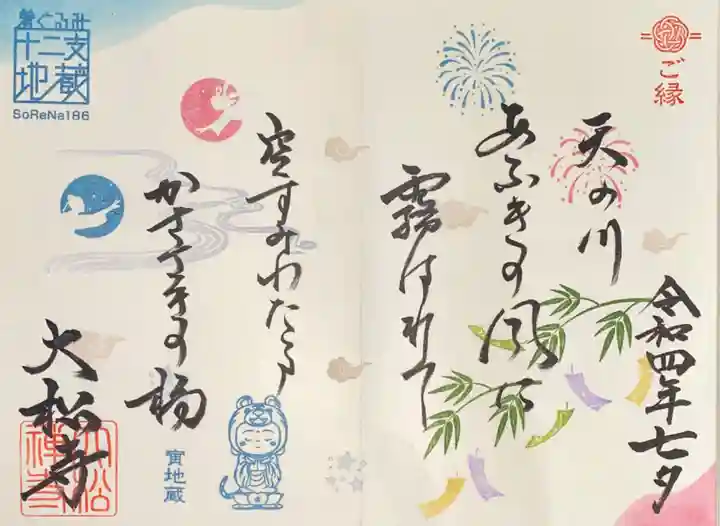 ご縁
令和四年七夕
天の川
あふきの風に
霧はれて
空すみわたる
かささきの橋
大松寺
大松
禅寺
寅地蔵
着ぐるみ
十二支
地蔵
SoReNa186